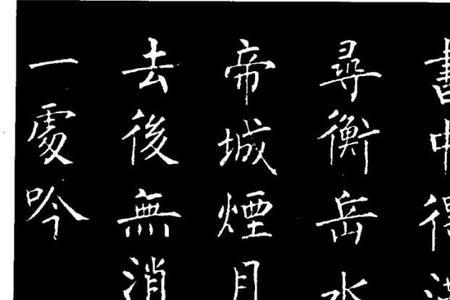 書中得
尋衡岳水
帝城煙月
去後無消
一處吟